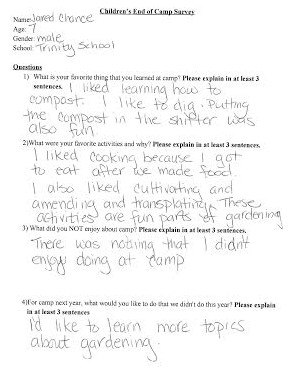 Children's End of Camp Survey
Name: Jared Chance
Age: 7
Gender: male
School: Trinity School
Questions
1) What is your favorite thing that you learned at camp? Please explain in at least 3
sentences. I liked learning how to
compost. I like to dig. Putting
the compost in the shifter was
also fun.
2)What were your favorite activities and why? Please explain in at least 3 sentences.
I liked cooking because I got
to eat after we made food.
I also liked cultivating and
amending and transplating. These
activities are fun parts of gardening
3) What did you NOT enjoy about camp? Please explain in at least 3 sentences.
There was nothing that I didn't
enjoy doing at camp
4)For camp next year, what would you like to do that we didn't do this year? Please explain
in at least 3 sentences
I'd like to learn more topics
about gardening.